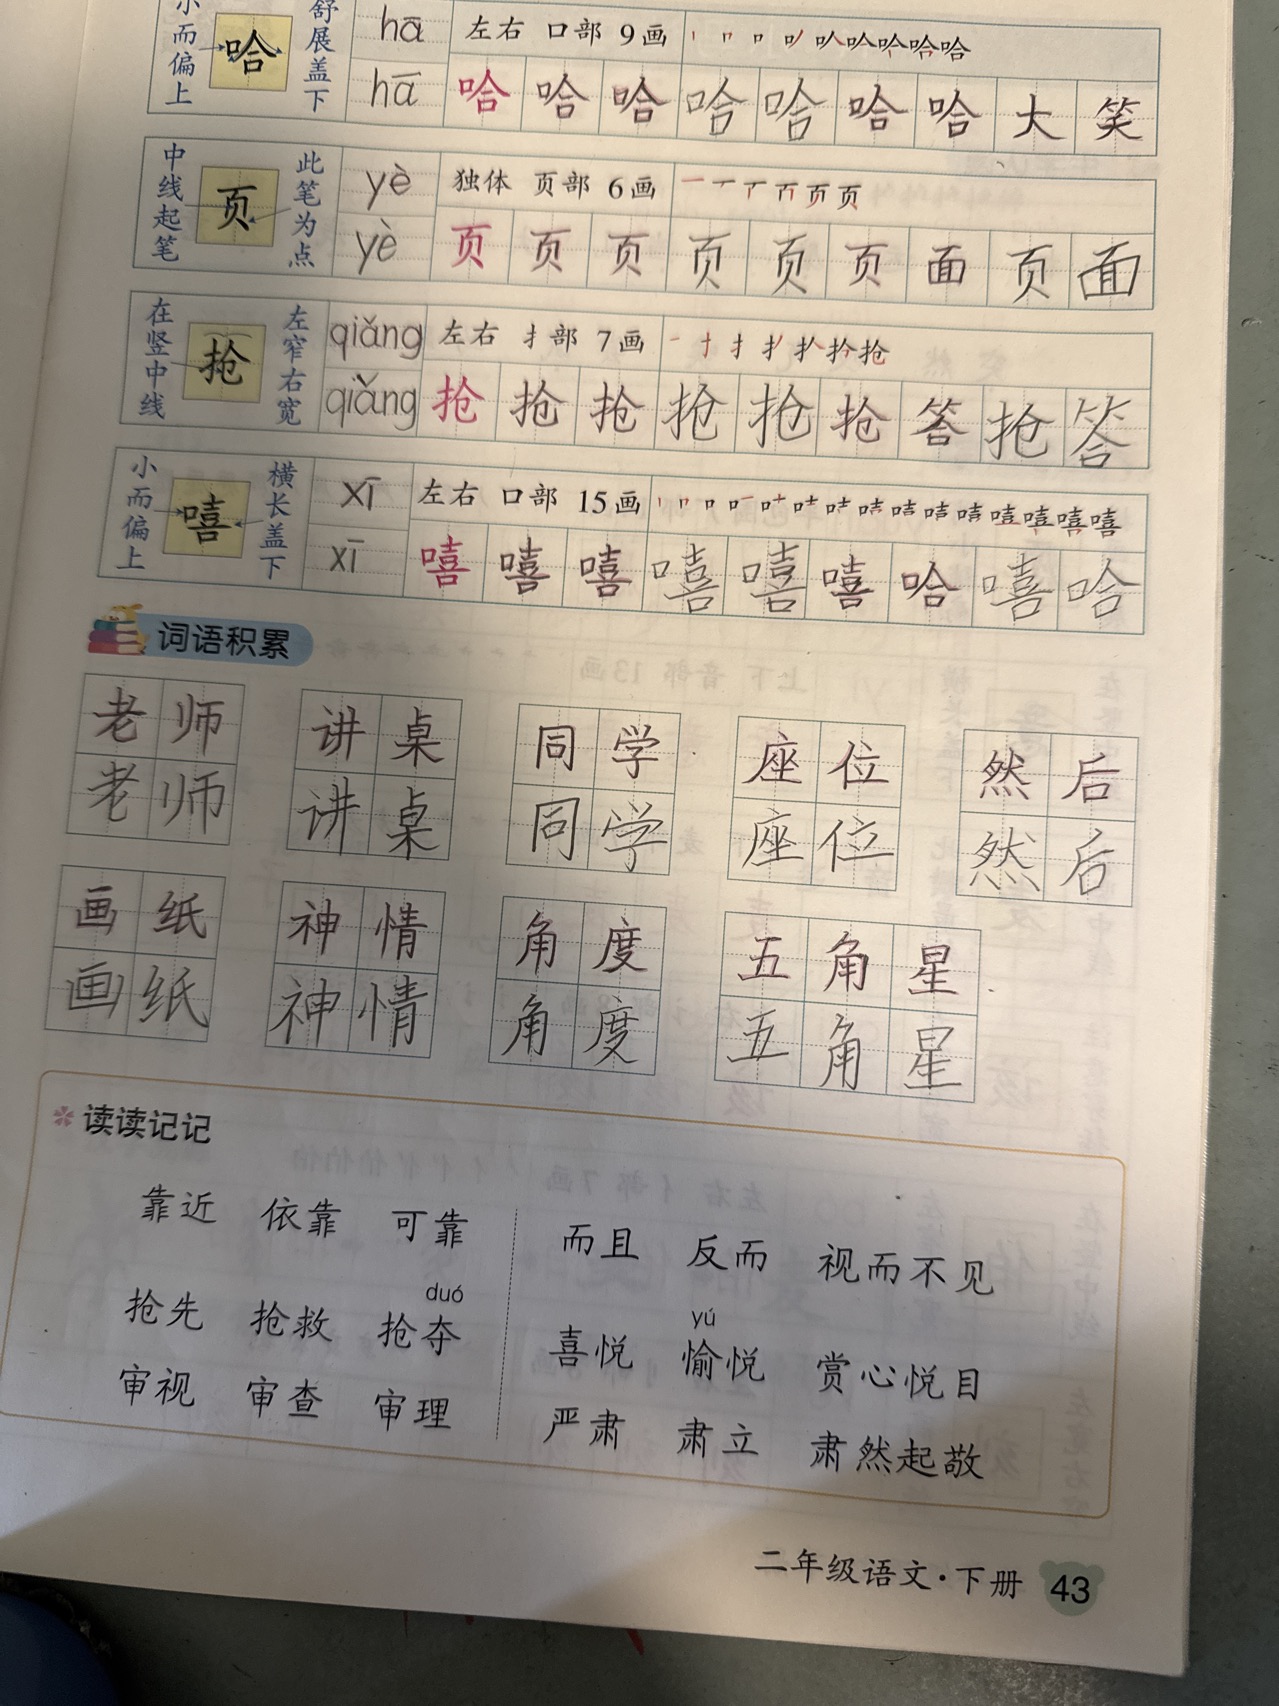 小而偏上 哈 舒展盖下 hā 左右 口部 9画
hā 哈 哈 哈 哈 哈 哈 哈 大 笑
中线起笔 页 此笔为点 yè 独体 页部 6画
yè 页 页 页 页 页 页 面 页 面
在竖中线 抢 左窄右宽 qiǎng 左右 扌部 7画
qiǎng 抢 抢 抢 抢 抢 抢 答 抢 答
小而偏上 嘻 横长盖下 xī 左右 口部 15画
xī 嘻 嘻 嘻 嘻 嘻 嘻 哈 嘻 哈
词语积累
老师 讲桌 同学 座位 然后
老师 讲桌 同学 座位 然后
画纸 神情 角度 五角星
画纸 神情 角度 五角星
读读记记
靠近 依靠 可靠 而且 反而 视而不见
duó yú
抢先 抢救 抢夺 喜悦 愉悦 赏心悦目
审视 审查 审理 严肃 肃立 肃然起敬
二年级语文·下册 43